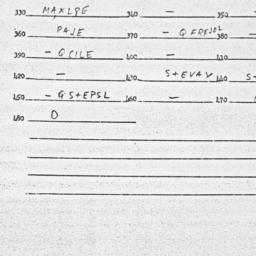 330 MAXLSE 340 — 350
360 PAJE 370 - Q FRFJDL 380 -
390 - QCILE 400 — 410
420 — 430 S+EVAV 440 S-
450 - GS+EPSL 460 — 470
480 0